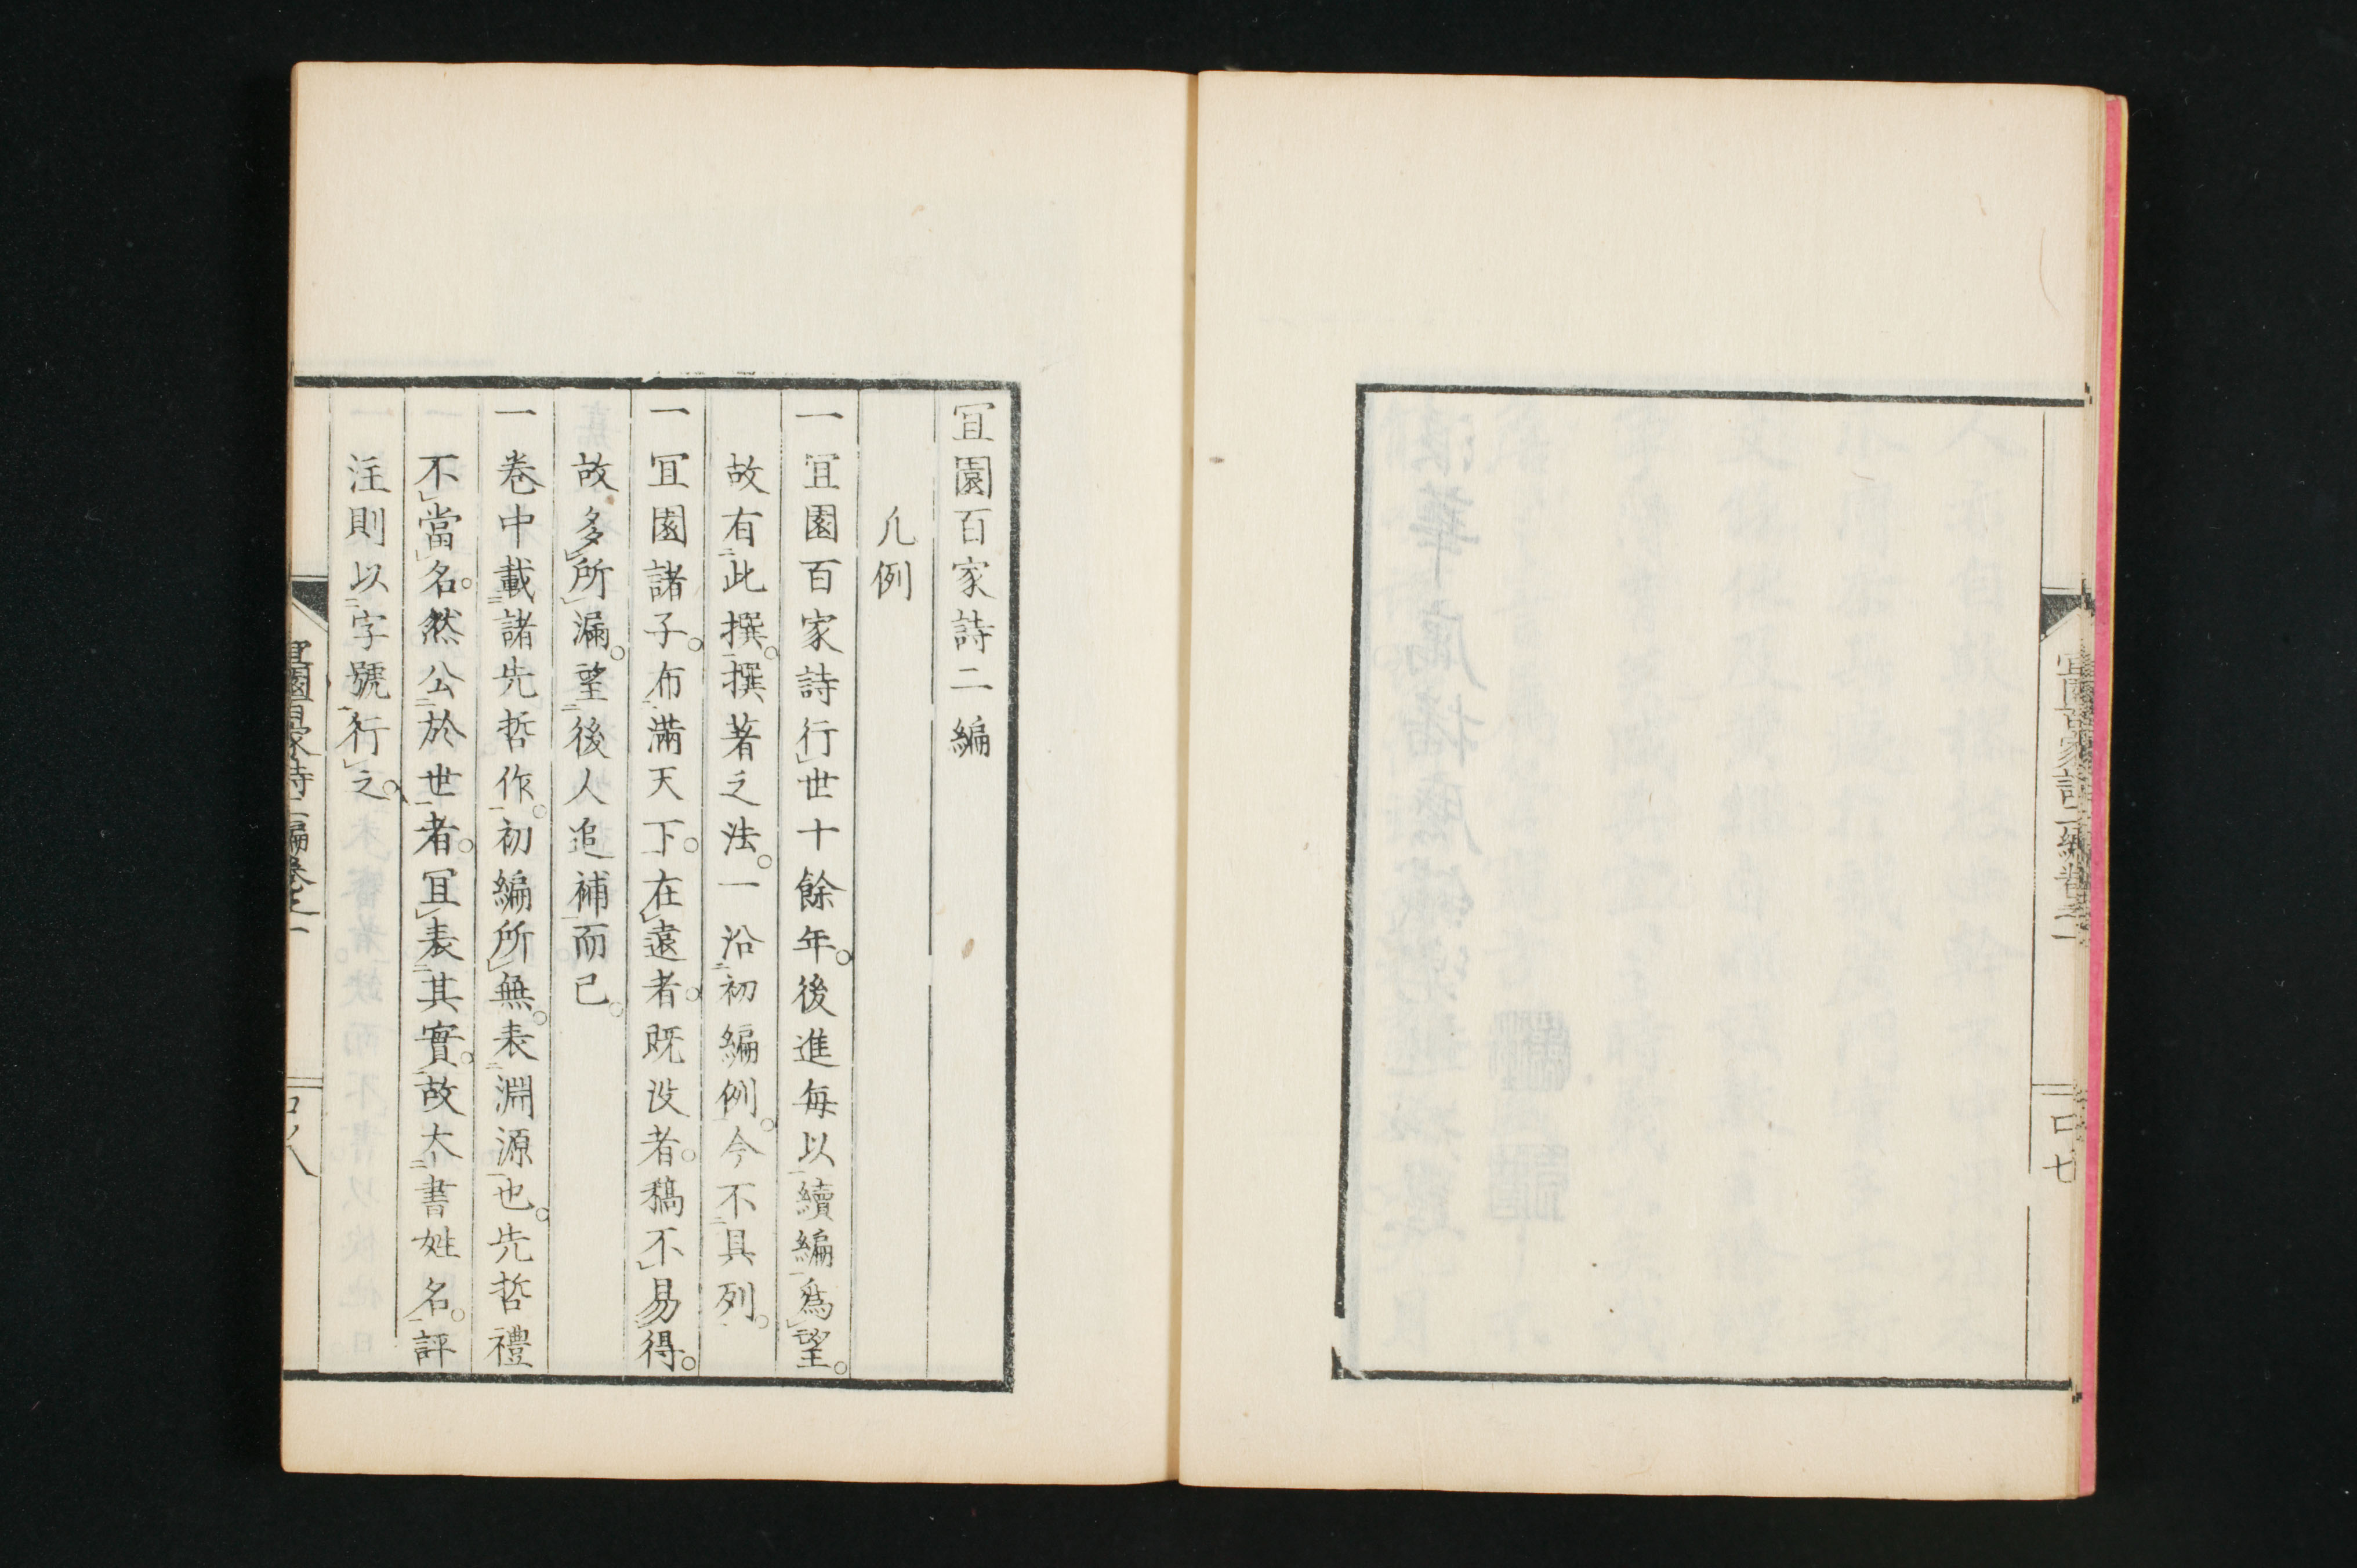 宜園百家詩二編卷之一
口七
宜園百家詩二編
凡例
一宜園百家詩行世十餘年。後進每以續編為望。
故有此撰。撰著之法。一沿初編例。今不具列。
一宜園諸子。布滿天下。在遠者。既沒者。稿不易得。
故多所漏。望後人追補而已。
一卷中載諸先哲作。初編所無。表淵源也。先哲禮
不當名。然公於世者。宜表其實。故大書姓名。評
注則以字號行之。
宜園百家詩二編卷之一
口八